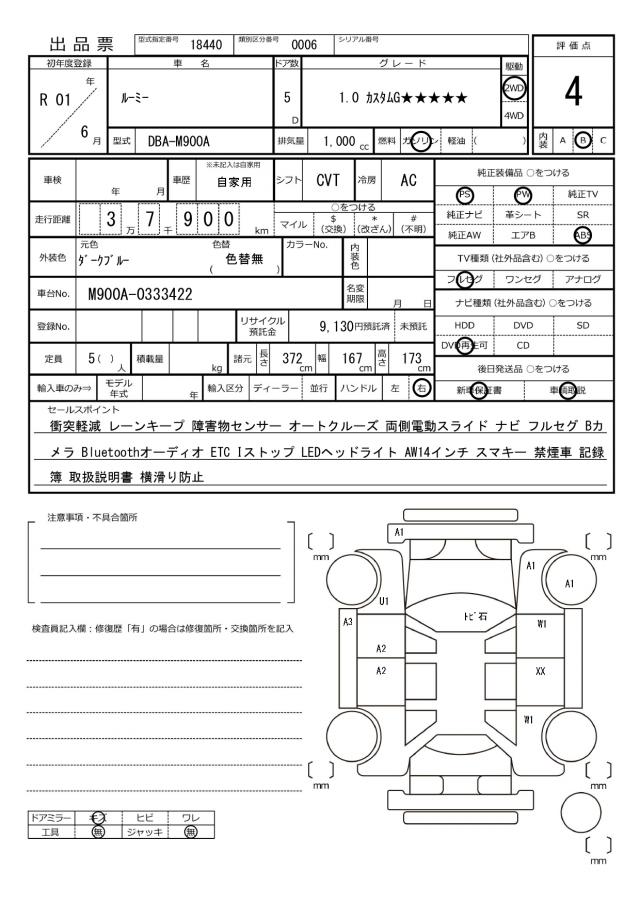 出品票 型式指定番号 18440 類別区分番号 0006 シリアル番号
評価点
4
内装 A B C
初年度登録 車名 ドア数 グレード 駆動
R 01 年 6 月 ルーミー 5 D 1.0 カスタムG★★★★★ 2WD 4WD
型式 DBA-M900A 排気量 1,000 cc 燃料 ガソリン 軽油 ( )
車検 年 月 車歴 ※未記入は自家用 自家用 シフト CVT 冷房 AC
走行距離 3 万 7 千 9 0 0 km
○をつける
マイル $ (交換) * (改ざん) # (不明)
外装色 元色 ダークブルー 色替 ( 色替無 ) カラーNo. 内装色
車台No. M900A-0333422 名変期限 月 日
登録No. リサイクル預託金 9,130円預託済 未預託
定員 5( )人 積載量 kg 諸元 長さ 372 cm 幅 167 cm 高さ 173 cm
輸入車のみ⇒ モデル年式 年 輸入区分 ディーラー 並行 ハンドル 左 右
純正装備品 ○をつける
PS PW 純正TV
純正ナビ 革シート SR
純正AW エアB ABS
TV種類 (社外品含む) ○をつける
フルセグ ワンセグ アナログ
ナビ種類 (社外品含む) ○をつける
HDD DVD SD
DVD再生可 CD
後日発送品 ○をつける
新車保証書 車輌取説
セールスポイント
衝突軽減 レーンキープ 障害物センサー オートクルーズ 両側電動スライド ナビ フルセグ Bカ
メラ Bluetoothオーディオ ETC Iストップ LEDヘッドライト AW14インチ スマキー 禁煙車 記録
簿 取扱説明書 横滑り防止
注意事項・不具合箇所
検査員記入欄：修復歴「有」の場合は修復箇所・交換箇所を記入
ドアミラー キズ ヒビ ワレ
工具 無 ジャッキ 無
A1
[ ] mm
[ ] mm
A1
A1
U1
トビ石
A3
W1
A2
A2
XX
W1
[ ] mm
[ ] mm
[ ] mm